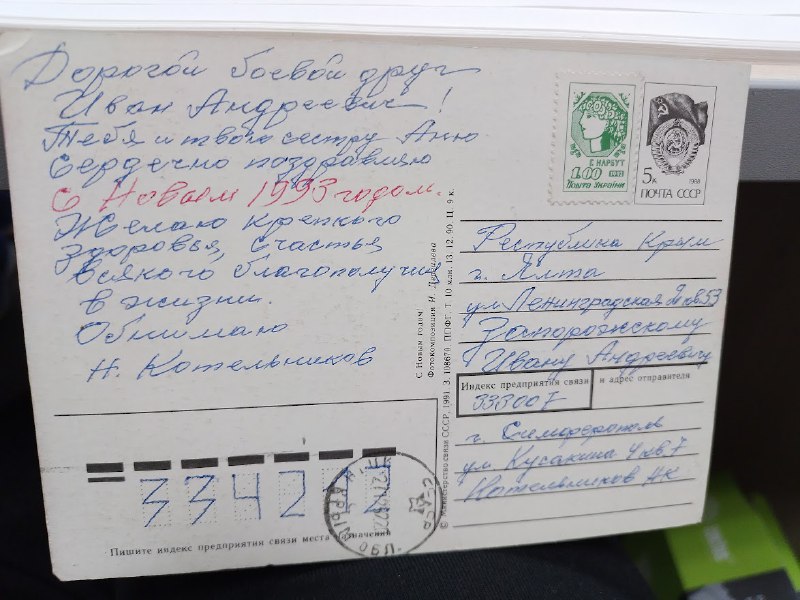 Дорогой боевой друг
Иван Андреевич!
Тебя и твою сестру Аню
сердечно поздравляю
с Новым 1993 годом.
Желаю крепкого
здоровья, счастья
всякого благополучия
в жизни.
Обнимаю
Н. Котельников
Г. НАРБУТ
1.00 1992
ПОШТА УКРАЇНИ
5к 1988
ПОЧТА СССР
Республика Крым
г. Ялта
ул Ленинградская кв 53
Запорожскому
Ивану Андреевичу
Индекс предприятия связи и адрес отправителя
333007
г. Симферополь
ул Кусакина 4 кв 7
Котельников НК
334211
Пишите индекс предприятия связи места назначения
С Новым годом!
Фотокомпозиция И. Дергилева
© Министерство связи СССР, 1991 З. 108670. ППФГ. Т. 10 млн. 13. 12. 90. Ц. 9 к.
СССР